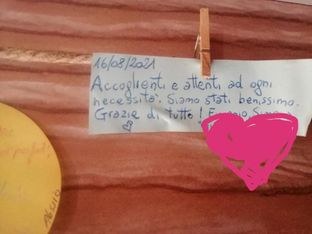 16/08/2021
Accoglienti e attenti ad ogni
necessità. Siamo stati benissimo.
Grazie di tutto!